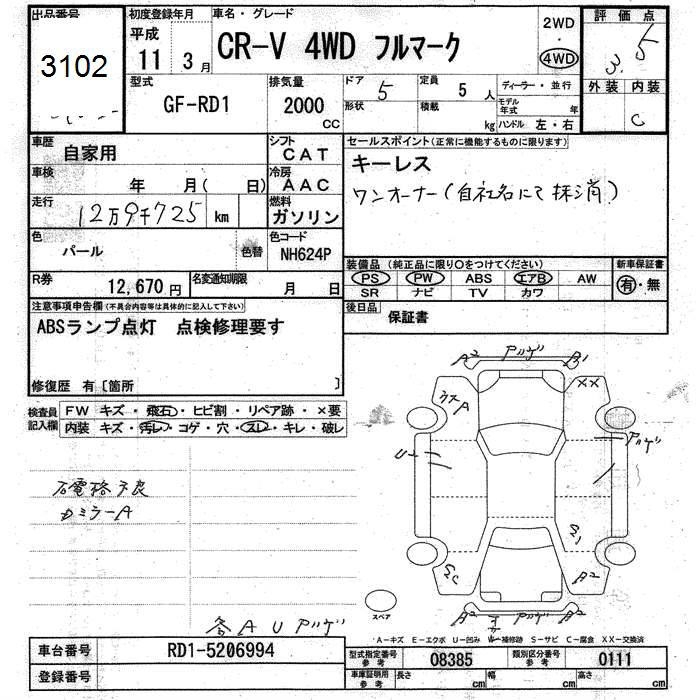 出品番号 初度登録年月 車名・グレード 2WD 評価点
3102 平成 11 3月 CR-V 4WD フルマーク 4WD 3.5
型式 排気量 ドア 5 定員 5人 ディーラー・並行 外装 内装
GF-RD1 2000 CC 形状 積載 kg モデル年式 年 C
ハンドル 左・右
車歴 自家用 シフト CAT セールスポイント(正常に機能するものに限ります)
車検 年 月( 日) 冷房 AAC キーレス
走行 12万9千725 km 燃料 ガソリン ワンオーナー(自社名にて抹消)
色 パール 色替 色コード NH624P
装備品 (純正品に限り○をつけてください) 新車保証書
R券 12,670円 名変通知期限 月 日 PS PW ABS エアB AW 有・無
SR ナビ TV カワ
注意事項申告欄(不具合内容等は具体的に記入して下さい) 後日品 保証書
ABSランプ点灯 点検修理要す
修復歴 有〔箇所 〕
検査員記入欄 FW キズ・飛石・ヒビ割・リペア跡・×要
内装 キズ・汚レ・コゲ・穴・スレ・キレ・破レ
A2 アゲ B1
ウスA XX
U アゲ
カミラーA
A2
A2 アゲ A2
スペア
各A U アゲ
A-キズ E-エクボ U-凹み W-補修跡 S-サビ C-腐食 XX-交換済
車台番号 RD1-5206994 型式指定番号 参考 08385 類別区分番号 参考 0111
登録番号 車庫証明用 参考 長さ cm 幅 cm 高さ cm